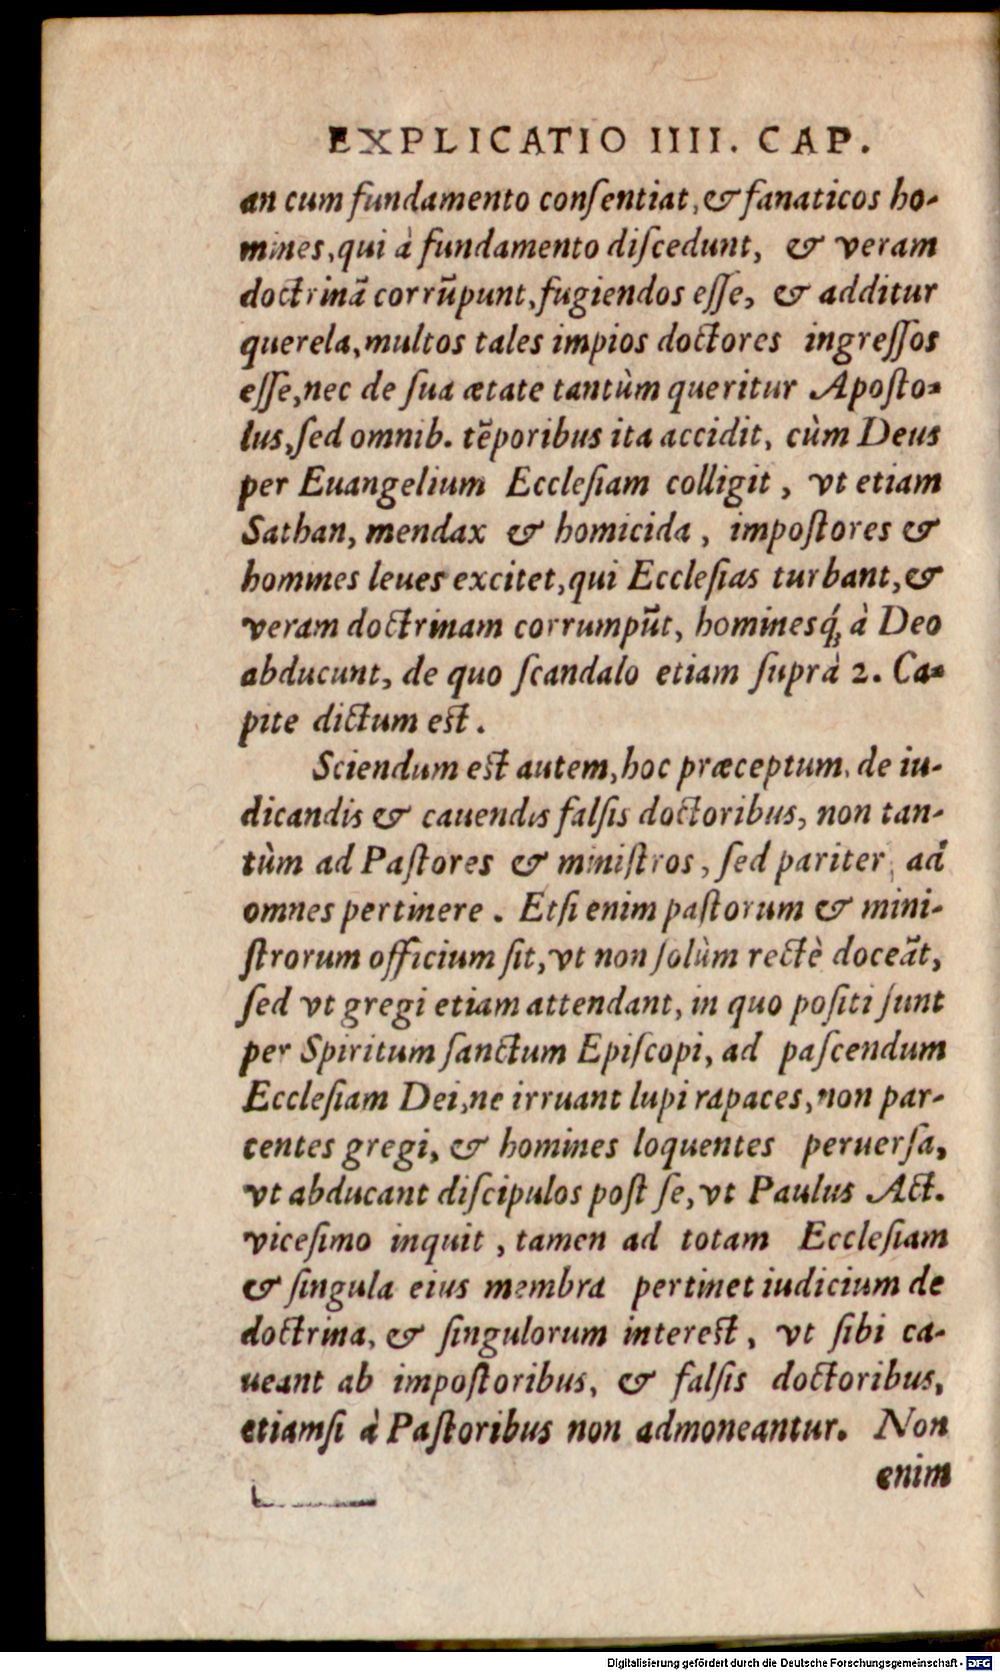 EXPLICATIO IIII. CAP.
an cum fundamento conſentiat, & fanaticos ho-
mines, qui à fundamento diſcedunt, & veram
doctrinã corrũpunt, fugiendos eſſe, & additur
querela, multos tales impios doctores ingreſſos
eſſe, nec de ſua ætate tantùm queritur Apoſto-
lus, ſed omnib. tẽporibus ita accidit, cùm Deus
per Euangelium Eccleſiam colligit, vt etiam
Sathan, mendax & homicida, impoſtores &
homines leues excitet, qui Eccleſias turbant, &
veram doctrinam corrumpũt, hominesq́; à Deo
abducunt, de quo ſcandalo etiam ſuprà 2. Ca-
pite dictum eſt.
Sciendum eſt autem, hoc præceptum, de iu-
dicandis & cauendis falſis doctoribus, non tan-
tùm ad Paſtores & miniſtros, ſed pariter, ad
omnes pertinere. Etſi enim paſtorum & mini-
ſtrorum officium ſit, vt non ſolùm rectè doceãt,
ſed vt gregi etiam attendant, in quo poſiti ſunt
per Spiritum ſanctum Epiſcopi, ad paſcendum
Eccleſiam Dei, ne irruant lupi rapaces, non par-
centes gregi, & homines loquentes peruerſa,
vt abducant diſcipulos poſt ſe, vt Paulus Act.
viceſimo inquit, tamen ad totam Eccleſiam
& ſingula eius membra pertinet iudicium de
doctrina, & ſingulorum intereſt, vt ſibi ca-
ueant ab impoſtoribus, & falſis doctoribus,
etiamſi à Paſtoribus non admoneantur. Non
enim
Digitalisierung gefördert durch die Deutsche Forschungsgemeinschaft - DFG